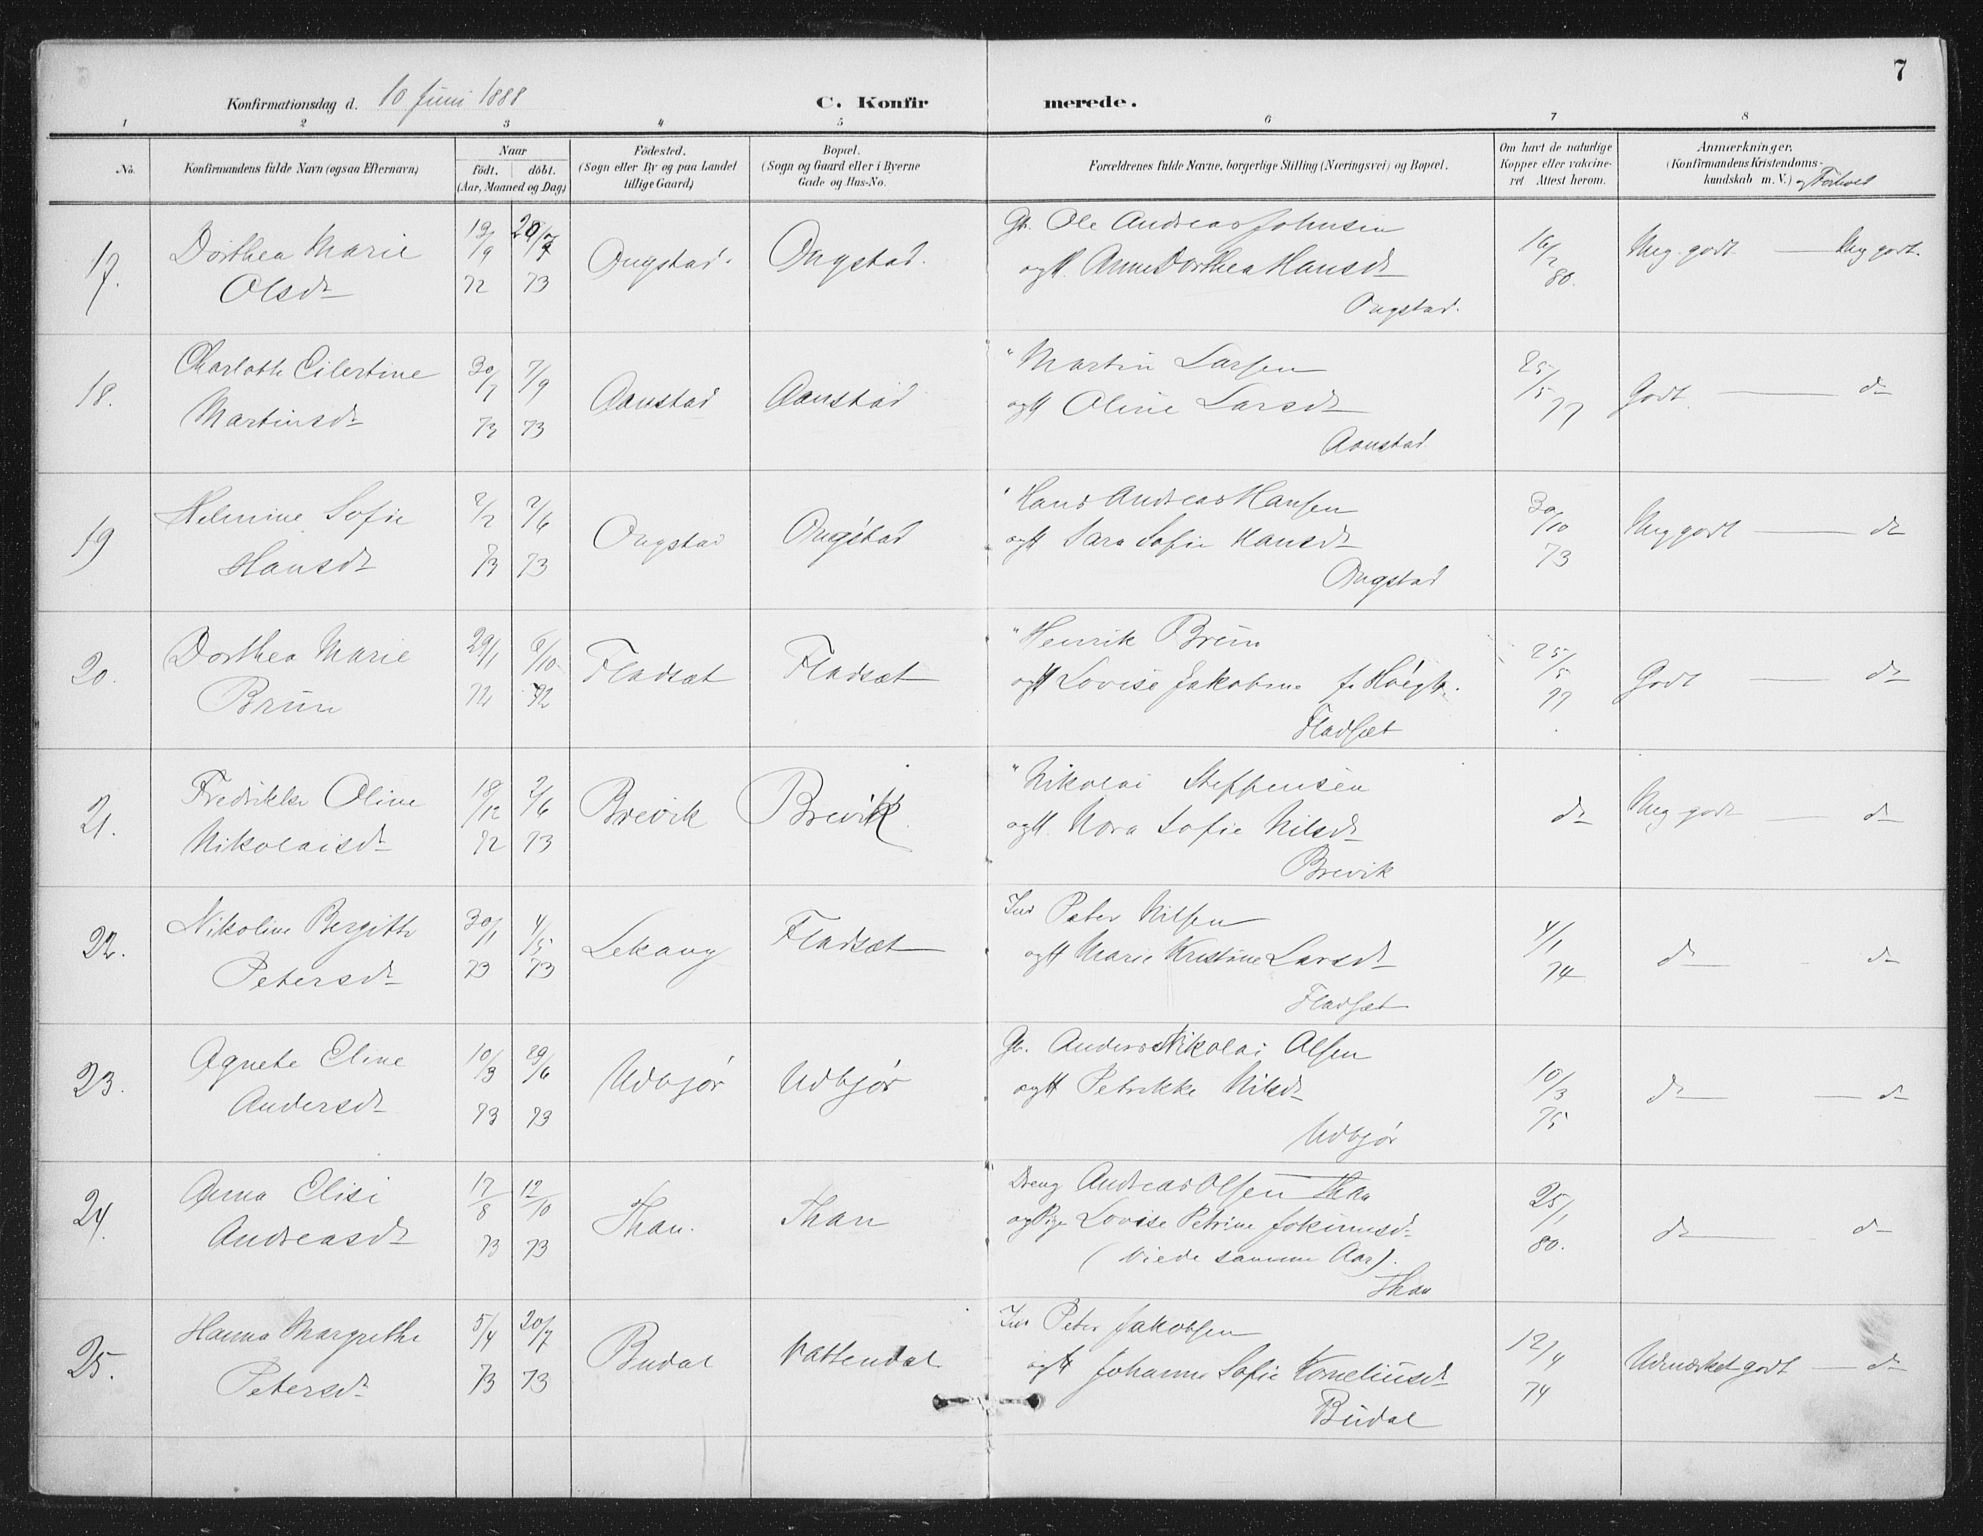 7
Konfirmationsdag d. 10 Juni 1888
C. Konfir merede.
1 2 3 4 5 6 7 8
No.
Konfirmandens fulde Navn (ogsaa Efternavn)
Naar
födt. döbt.
(Aar, Maaned og Dag)
Födested.
(Sogn eller By og paa Landet
tillige Gaard)
Bopæl.
(Sogn og Gaard eller i Byerne
Gade og Hus-No.
Forældrenes fulde Navne, borgerlige Stilling (Næringsvei) og Bopæl.
Om havt de naturlige
Kopper eller vakcine-
ret Attest herom.
Anmærkninger.
(Konfirmandens Kristendoms-
kundskab m. V.) og Forhold
17. Dorthea Marie Olsdt 19/9 72 20/7 73 Ongstad. Ongstad. Gb. Ole Andreas Johnsen
ogH. Anne Dorthea Hansdt
Ongstad.
16/7 80. Meg. godt — Meg godt.
18. Charloth Eilertine Martinsdt 30/7 73 7/9 73 Aanstad Aanstad " Martin Larsen
ogH Oline Larsdt
Aanstad
25/5 77 Godt — do
19 Helmine Sofie Hansdt 2/2 73 2/6 73 Ongstad Ongstad " Hans Andreas Hansen
ogH Sara Sofie Hansdt
Ongstad
30/10 73 Meg godt — do
20. Dorthea Marie Brun 29/1 72 6/10 72 Fladsæt Fladsæt " Henrik Brun
ogH Lovise Jakobine f. Høegh.
Fladsæt
25/5 77 Godt — do
21. Fredrikke Oline Nikolaisdt 18/12 72 2/6 73 Brevik Brevik " Nikolai Steffensen
ogH. Nora Sofie Nilsdt
Brevik
do Meg godt — do
22. Nikoline Bergithe Petersdt 30/1 73 4/5 73 Lekang Fladsæt Ind Peter Nilsen
ogH Marie Kristine Larsdt
Fladsæt
4/1 74 do — do
23. Agnete Eline Andersdt 10/3 73 29/6 73 Udbjør Udbjør Gb. Anders Nikolai Olsen
ogH Petrikke Nilsdt
Udbjør
10/3 75 do — do
24. Anna Elisi Andreasdt 17/8 73 12/10 73 Than. Than Dreng Andreas Olsen Than
og Pige Lovise Petrine Jokumsdt
(Viede samme Aar).
Than
25/1 80. do — do
25. Hanna Margrethe Petersdt 5/4 73 20/7 73 Budal Vattendal Ind Peter Jakobsen
ogH Johanna Sofie Korneliusdt
Budal
12/4 74 Udmærket godt — do